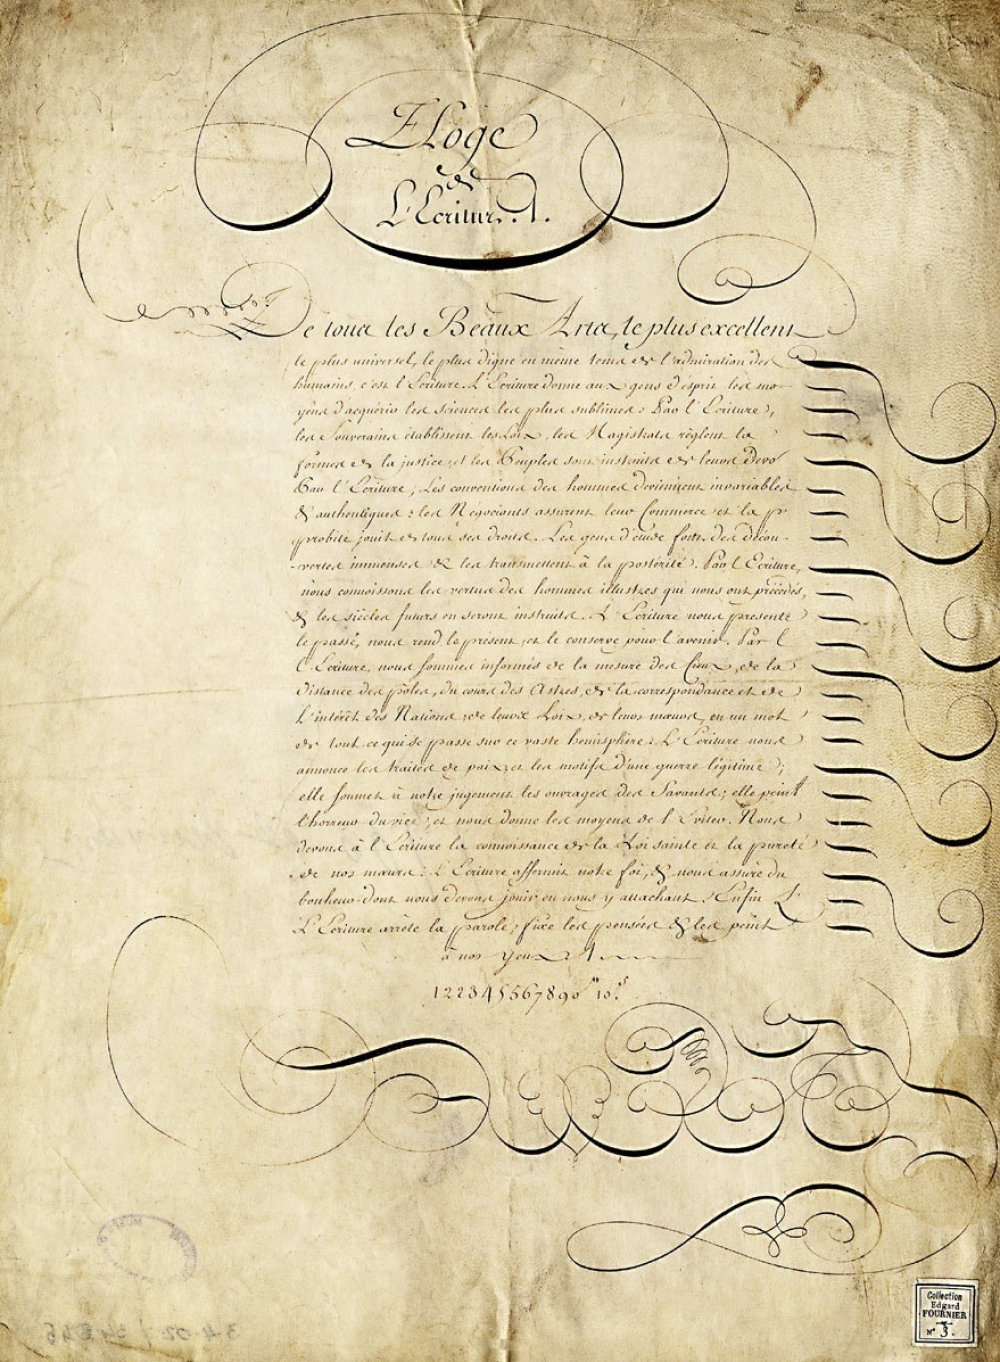 Eloge
de
L'Ecriture.
De tous les Beaux Arts, le plus excellent
le plus universel, le plus digne en même tems de l'admiration des
humains, c'est l'Ecriture. L'Ecriture donne aux gens d'esprit les mo-
yens d'acquérir les sciences les plus sublimes: Par l'Ecriture,
les Souverains établissent les Loix, les Magistrats règlent la
forme de la justice, et les Peuples sont instruits de leurs devo
Par l'Ecriture, Les conventions des hommes deviennent invariables
& authentiques: les Negociants assurent leur Commerce et la p
probité jouit de tous ses droits. Les gens d'étude font des décou-
-vertes immenses & les transmettent à la postérité. Par l'Ecriture,
nous connoissons les vertus des hommes illustres qui nous ont précédés,
& les siècles futurs en seront instruits. L'Ecriture nous présente
le passé, nous rend le présent, et le conserve pour l'avenir. Par l
l'Ecriture, nous sommes informés de la mesure des Cieux, de la
distance des pôles, du cours des Astres, de la correspondance et de
L'intérêt des Nations, de leurs Loix, de leurs mœurs, en un mot
de tout ce qui se passe sur ce vaste hémisphère. L'Ecriture nous
annonce les traités de paix, et les motifs d'une guerre légitime;
elle soumet à notre jugement les ouvrages des Savants; elle peint
l'horreur du vice, et nous donne les moyens de l'éviter. Nous
devons à l'Ecriture la connoissance de la Loi sainte et la pureté
de nos mœurs: L'Ecriture affermit notre foi, & nous assure du
bonheur dont nous devons jouir en nous y attachant. Enfin L'
L'Ecriture arrête la parole, fixe les pensées & les peint
à nos yeux
12234556789010
Collection
Edgard
FOURNIER
N° 3.